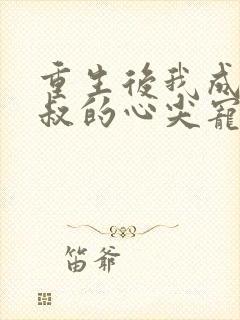 重生後我成
叔的心尖寵
笛爷